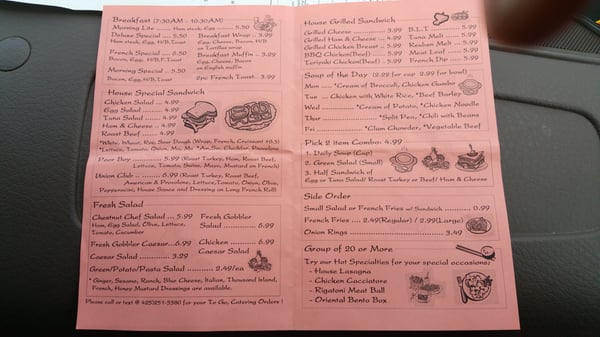 Breakfast (7:30AM - 10:30AM)
Morning Lite ...... 5.50
Ham steak, Egg
Deluxe Special ... 5.50
Ham steak, Egg, H/B, Toast
French Special ...... 6.50
Bacon, Egg, H/B, F.Toast
Morning Special ... 5.50
Bacon, Egg, H/B, Toast
Breakfast Wrap ... 3.99
Egg, Cheese, Bacon, H/B
on Tortilla wrap
Breakfast Muffin ... 3.99
Egg, Cheese, Bacon
on English muffin
2pc French Toast.. 3.99
House Special Sandwich
Chicken Salad ... 4.99
Egg Salad ......... 4.99
Tuna Salad ...... 4.99
Ham & Cheese .. 4.99
Roast Beef ...... 4.99
*White, Wheat, Rye, Sour Dough (Wrap, French, Croissant +0.5)
*Lettuce, Tomato, Onion, Ma, Mu *Am, Sw, Cheddar, Provolone
Poor Boy ............ 5.99 (Roast Turkey, Ham, Roast Beef,
Lettuce, Tomato, Swiss, Mayo, Mustard on French)
Union Club .. ......... 6.99 (Roast Turkey, Roast Beef,
American & Provolone, Lettuce, Tomato, Onion, Olive,
Pepperocini, House Sauce and Dressing on Long French Roll)
Fresh Salad
Chestnut Chef Salad ... 5.99
Ham, Egg Salad, Olive, Lettuce,
Tomato, Cucumber
Fresh Gobbler
Salad ............ 6.99
Fresh Gobbler Caesar...6.99
Chicken ............ 6.99
Caesar Salad
Caesar Salad ......... 3.29
Green/Potato/Pasta Salad ........... 2.49/ea
* Ginger, Sesame, Ranch, Blue Cheese, Italian, Thousand Island,
French, Honey Mustard Dressings are available.
Please call or text @ 425)251-5380 for your To Go, Catering Orders !
House Grilled Sandwich
Grilled Cheese ............... 3.99
Grilled Ham & Cheese ...... 4.99
Grilled Chicken Breast .. 5.99
BBQ Chicken(Beef) ...... 5.99
Teriyaki Chicken(Beef) .. 5.99
B.L.T. ............ 5.99
Tuna Melt ...... 5.99
Reuban Melt ... 5.99
Meat Loaf ...... 5.99
French Dip ...... 5.99
Soup of the Day (2.29 for cup 2.99 for bowl)
Mon ..... *Cream of Broccoli, Chicken Gumbo
Tue ... Chicken with White Rice, *Beef Barley
Wed ............ *Cream of Potato, *Chicken Noodle
Thur .................. *Split Pea, *Chili with Beans
Fri .................. *Clam Chowder, *Vegetable Beef
Pick 2 item Combo: 4.99
1. Daily Soup (Cup)
2. Green Salad (Small)
3. Half Sandwich of
Egg or Tuna Salad/ Roast Turkey or Beef/ Ham & Cheese
Side Order
Small Salad or French Fries w/ Sandwich ............ 0.99
French Fries .... 2.49(Regular) / 2.99(Large)
Onion Rings ................................. 3.49
Group of 20 or More
Try our Hot Specialties for your special occasions;
- House Lasagna
- Chicken Cacciatore
- Rigatoni Meat Ball
- Oriental Bento Box